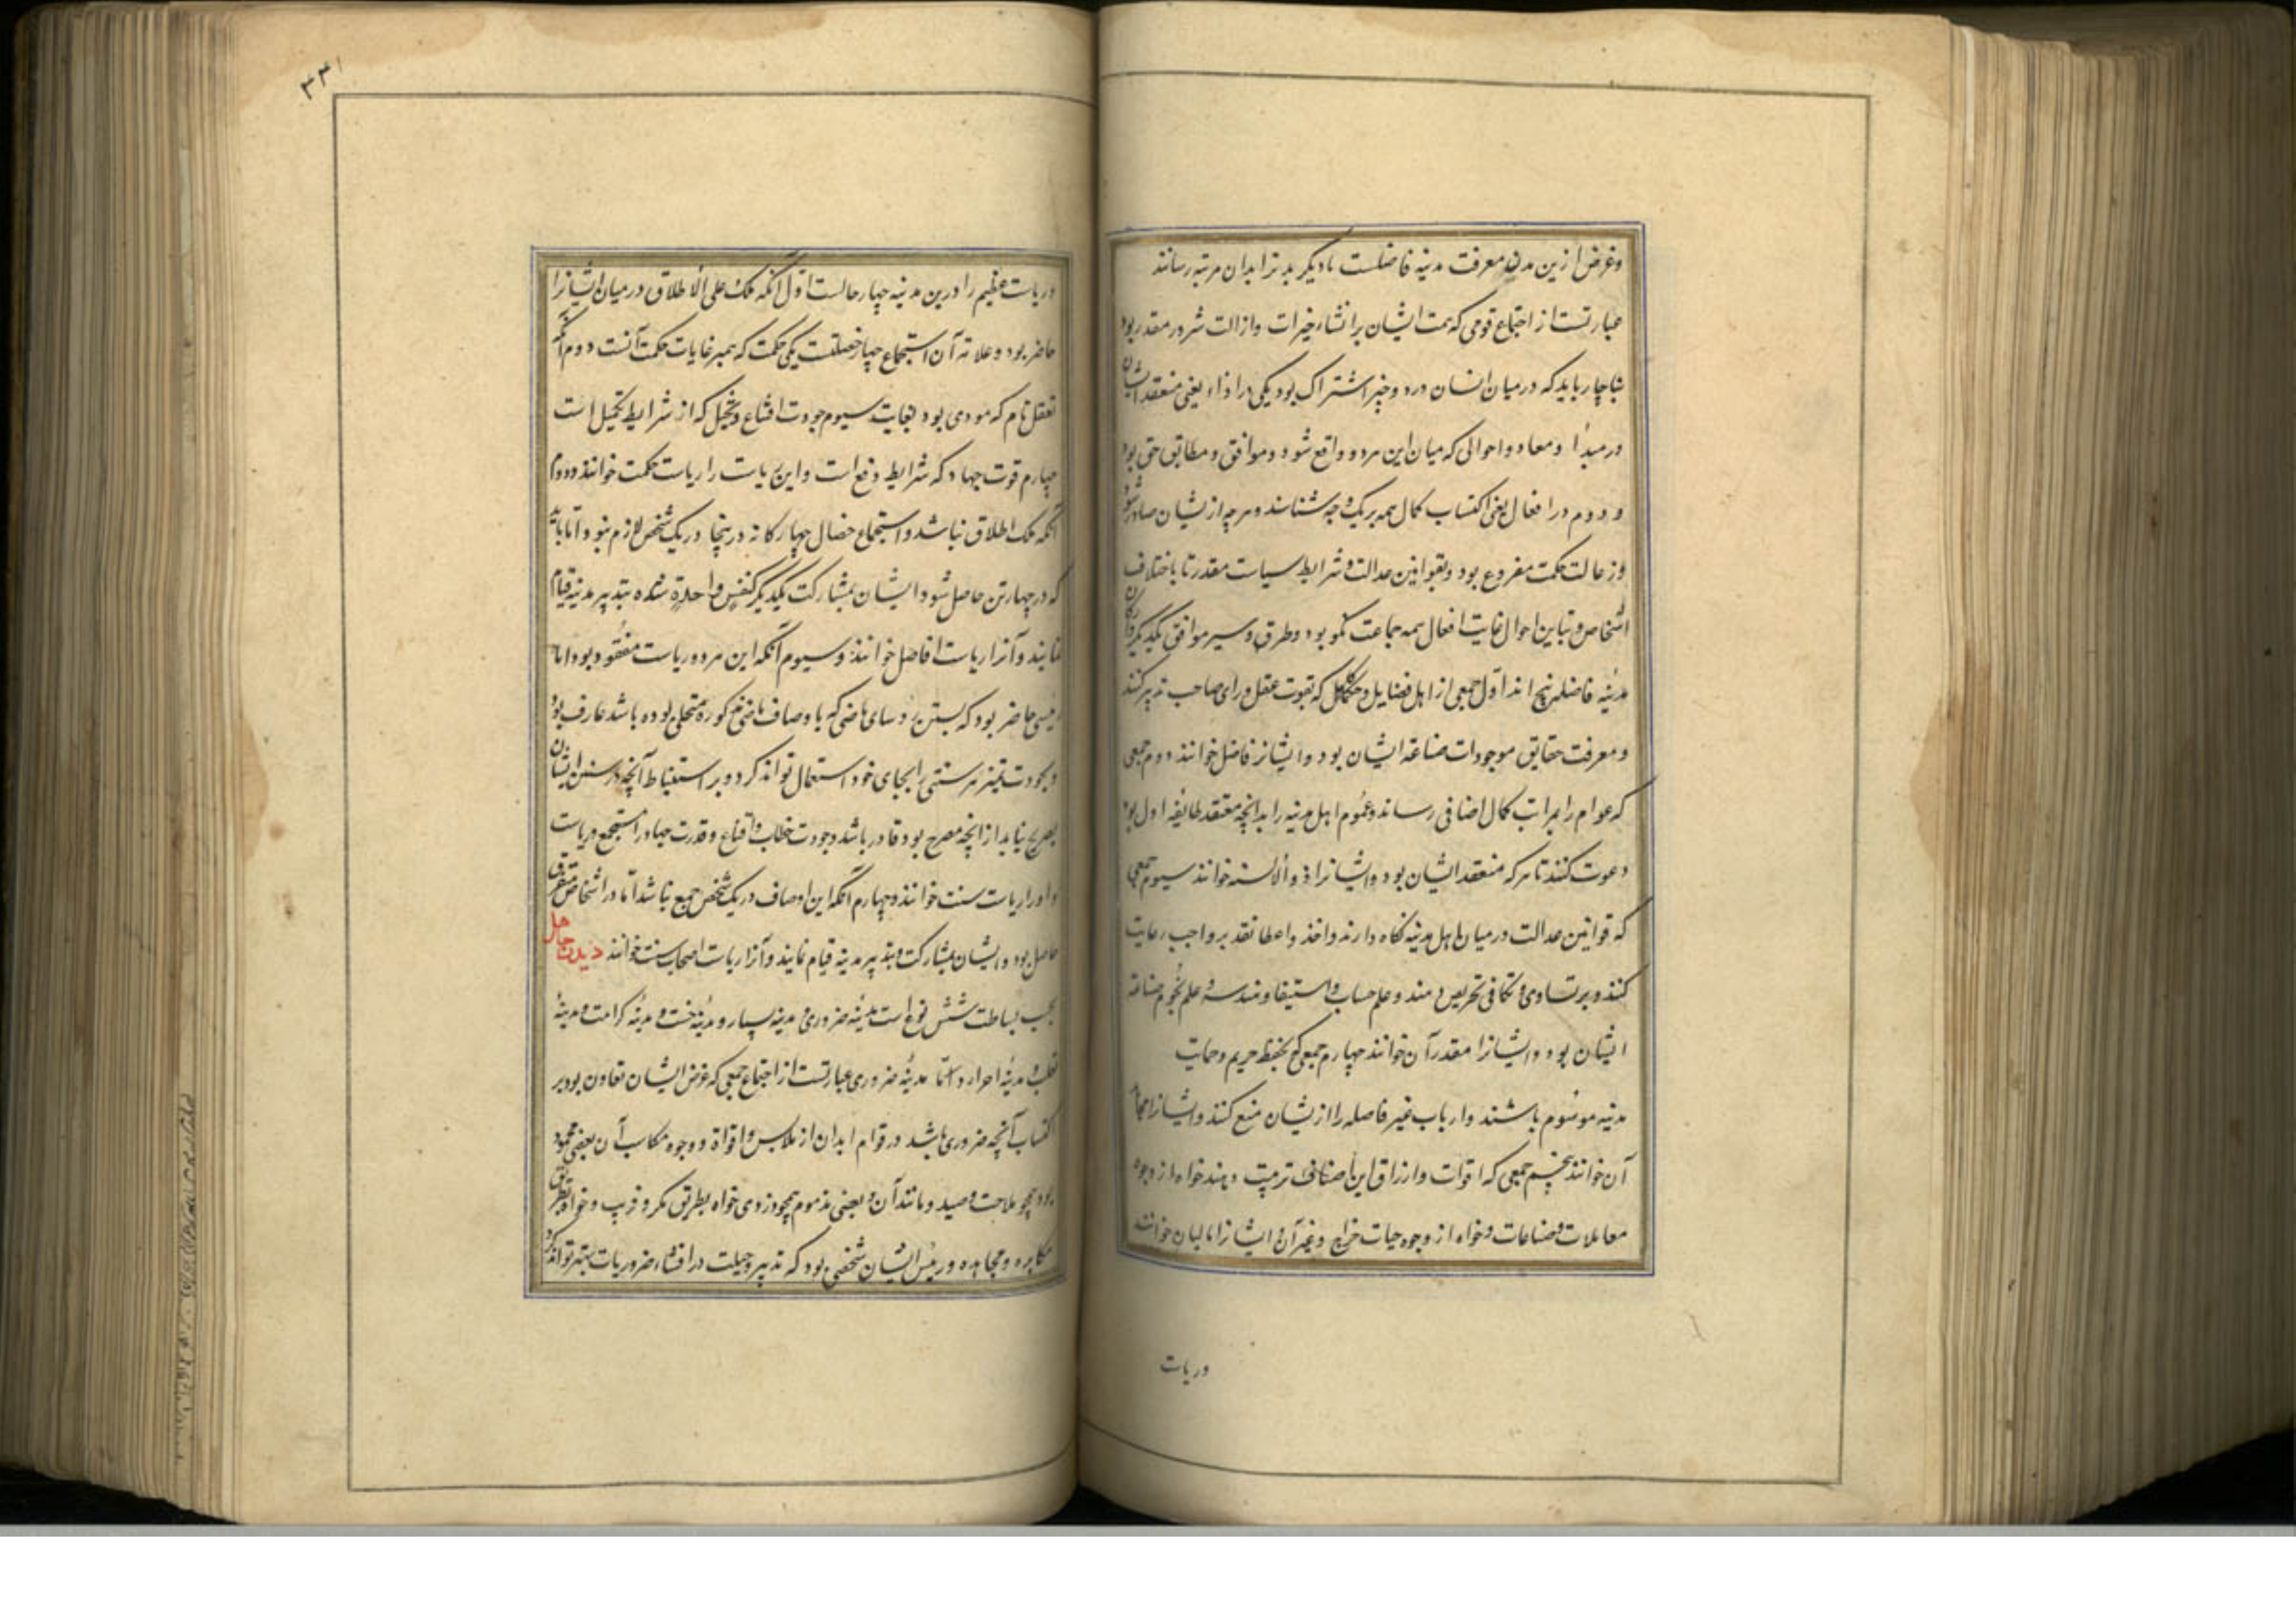 وغرض ازین مدن معرفت مدینه فاضلست تا دیگر مدنرا بدان مرتبه رسانند
عبارتست از اجتماع قومی که همت ایشان بر انشاء خیرات وازالت شرور مقدر بود
بناچار باید که درمیان انسان در دو چیز اشتراک بود یکی در اراء یعنی معتقد ایشان
در مبدأ ومعاد واحوالی که میان این هر دو واقع شود وموافق ومطابق حق بود
و دوم در افعال یعنی اکتساب کمال همه بریک وجه شناسند وهرچه ازیشان صادر شود
از حالت حکمت مفروغ بود وبقوانین عدالت وشرایط سیاست مقدر تا باختلاف
اشخاص وتباین احوال غایت افعال همه جماعت یکی بود وطرق وسیر موافق یکدیگر وارکان
مدینه فاضله پنج اند اول جمعی از اهل فضایل وحکما کامل که بقوت عقل ورای صاحب تدبیر کنند
ومعرفت حقایق موجودات صناعه ایشان بود وایشانرا فاضل خوانند دوم جمعی
که عوام را بمراتب کمال اضافی رسانند وعموم اهل مدینه را بدانچه معتقد طائفه اول بود
دعوت کنند تا هرکه منعقد ایشان بود وایشانرا ذو الالسنه خوانند سیوم جمعی
که قوانین عدالت درمیان اهل مدینه نگاه دارند واخذ واعطا تقدیر واجب رعایت
کنند وبر تساوی وتکافی تحریص دهند وعلم حساب واستیفا وهندسه وعلم نجوم صناعة
ایشان بود وایشانرا مقدرآن خوانند چهارم جمعی که بحفظ حریم وحمایت
مدینه موسوم باشند وارباب غیر فاضله را ازیشان منع کنند وایشانرا مجاهد
آن خوانند پنجم جمعی که اقوات وارزاق این اصناف ترتیب دهند خواه از وجوه
معاملات وصناعات وخواه از وجوه جبایت خراج وغیر آن وایشانرا مالیان خوانند
وریاست
۳۳۱
وریاست عظیم را درین مدینه چهار حالست اول آنکه ملک علی الاطلاق درمیان ایشانرا
حاضر بود وعلامة آن استجماع چهار خصلتست یکی حکمت که همه غایات حکمت آنست دوم آنکه
تعقل تام که مودی بود بغایت سیوم جودت اقناع وتخیل که از شرایط تکمیل است
چهارم قوت جهاد که شرایط دفع است واین ریاست را ریاست حکمت خوانند ودوم
آنکه ملک اطلاق نباشد واستجماع خصال چهارگانه درینجا دریک شخص لازم نبود اما باید
که در چهارتن حاصل شود وایشان بمشارکت یکدیگر کنفس واحدة شده بتدبیر مدینه قیام
نمایند وآنرا ریاست افاضل خوانند وسیوم آنکه این هر دو ریاست مفقود بود اما
رئیسی حاضر بود که بسنن رؤسای ماضی که باوصاف مذکوره متحلی بوده باشد عارف بود
وبجودت تمیز هر سنتی را بجای خود استعمال تواند کرد وبر استنباط آنچه در سنن ایشان
بصریح نیابد از انچه مصرح بود قادر باشد وجودت خطاب واقناع وقدرت جهاد را مستجمع وریاست
واورا ریاست سنت خوانند وچهارم آنکه این اوصاف دریک شخص جمع نباشد اما در اشخاص متفرق
حاصل بود وایشان بمشارکت وتدبیر مدینه قیام نمایند وآنرا ریاست اصحاب سنت خوانند
بحسب بساطت شش نوع است مدینه ضروری ومدینه یسار ومدینه خست ومدینه کرامت ومدینه
تغلب ومدینه احرار واما مدینه ضروری عبارتست از اجتماع جمعی که غرض ایشان تعاون بود بر
اکتساب آنچه ضروری باشد در قوام ابدان از ملابس واقواة ووجوه مکاسب آن بعضی محمود
بود همچو فلاحت وصید ومانند آن وبعضی مذموم همچو دزدی خواه بطریق مکر وفریب وخواه بطریق
مکابره ومجاهده ورئیس ایشان شخصی بود که تدبیر وحیلت در اقتناء ضروریات بهتر تواند کرد